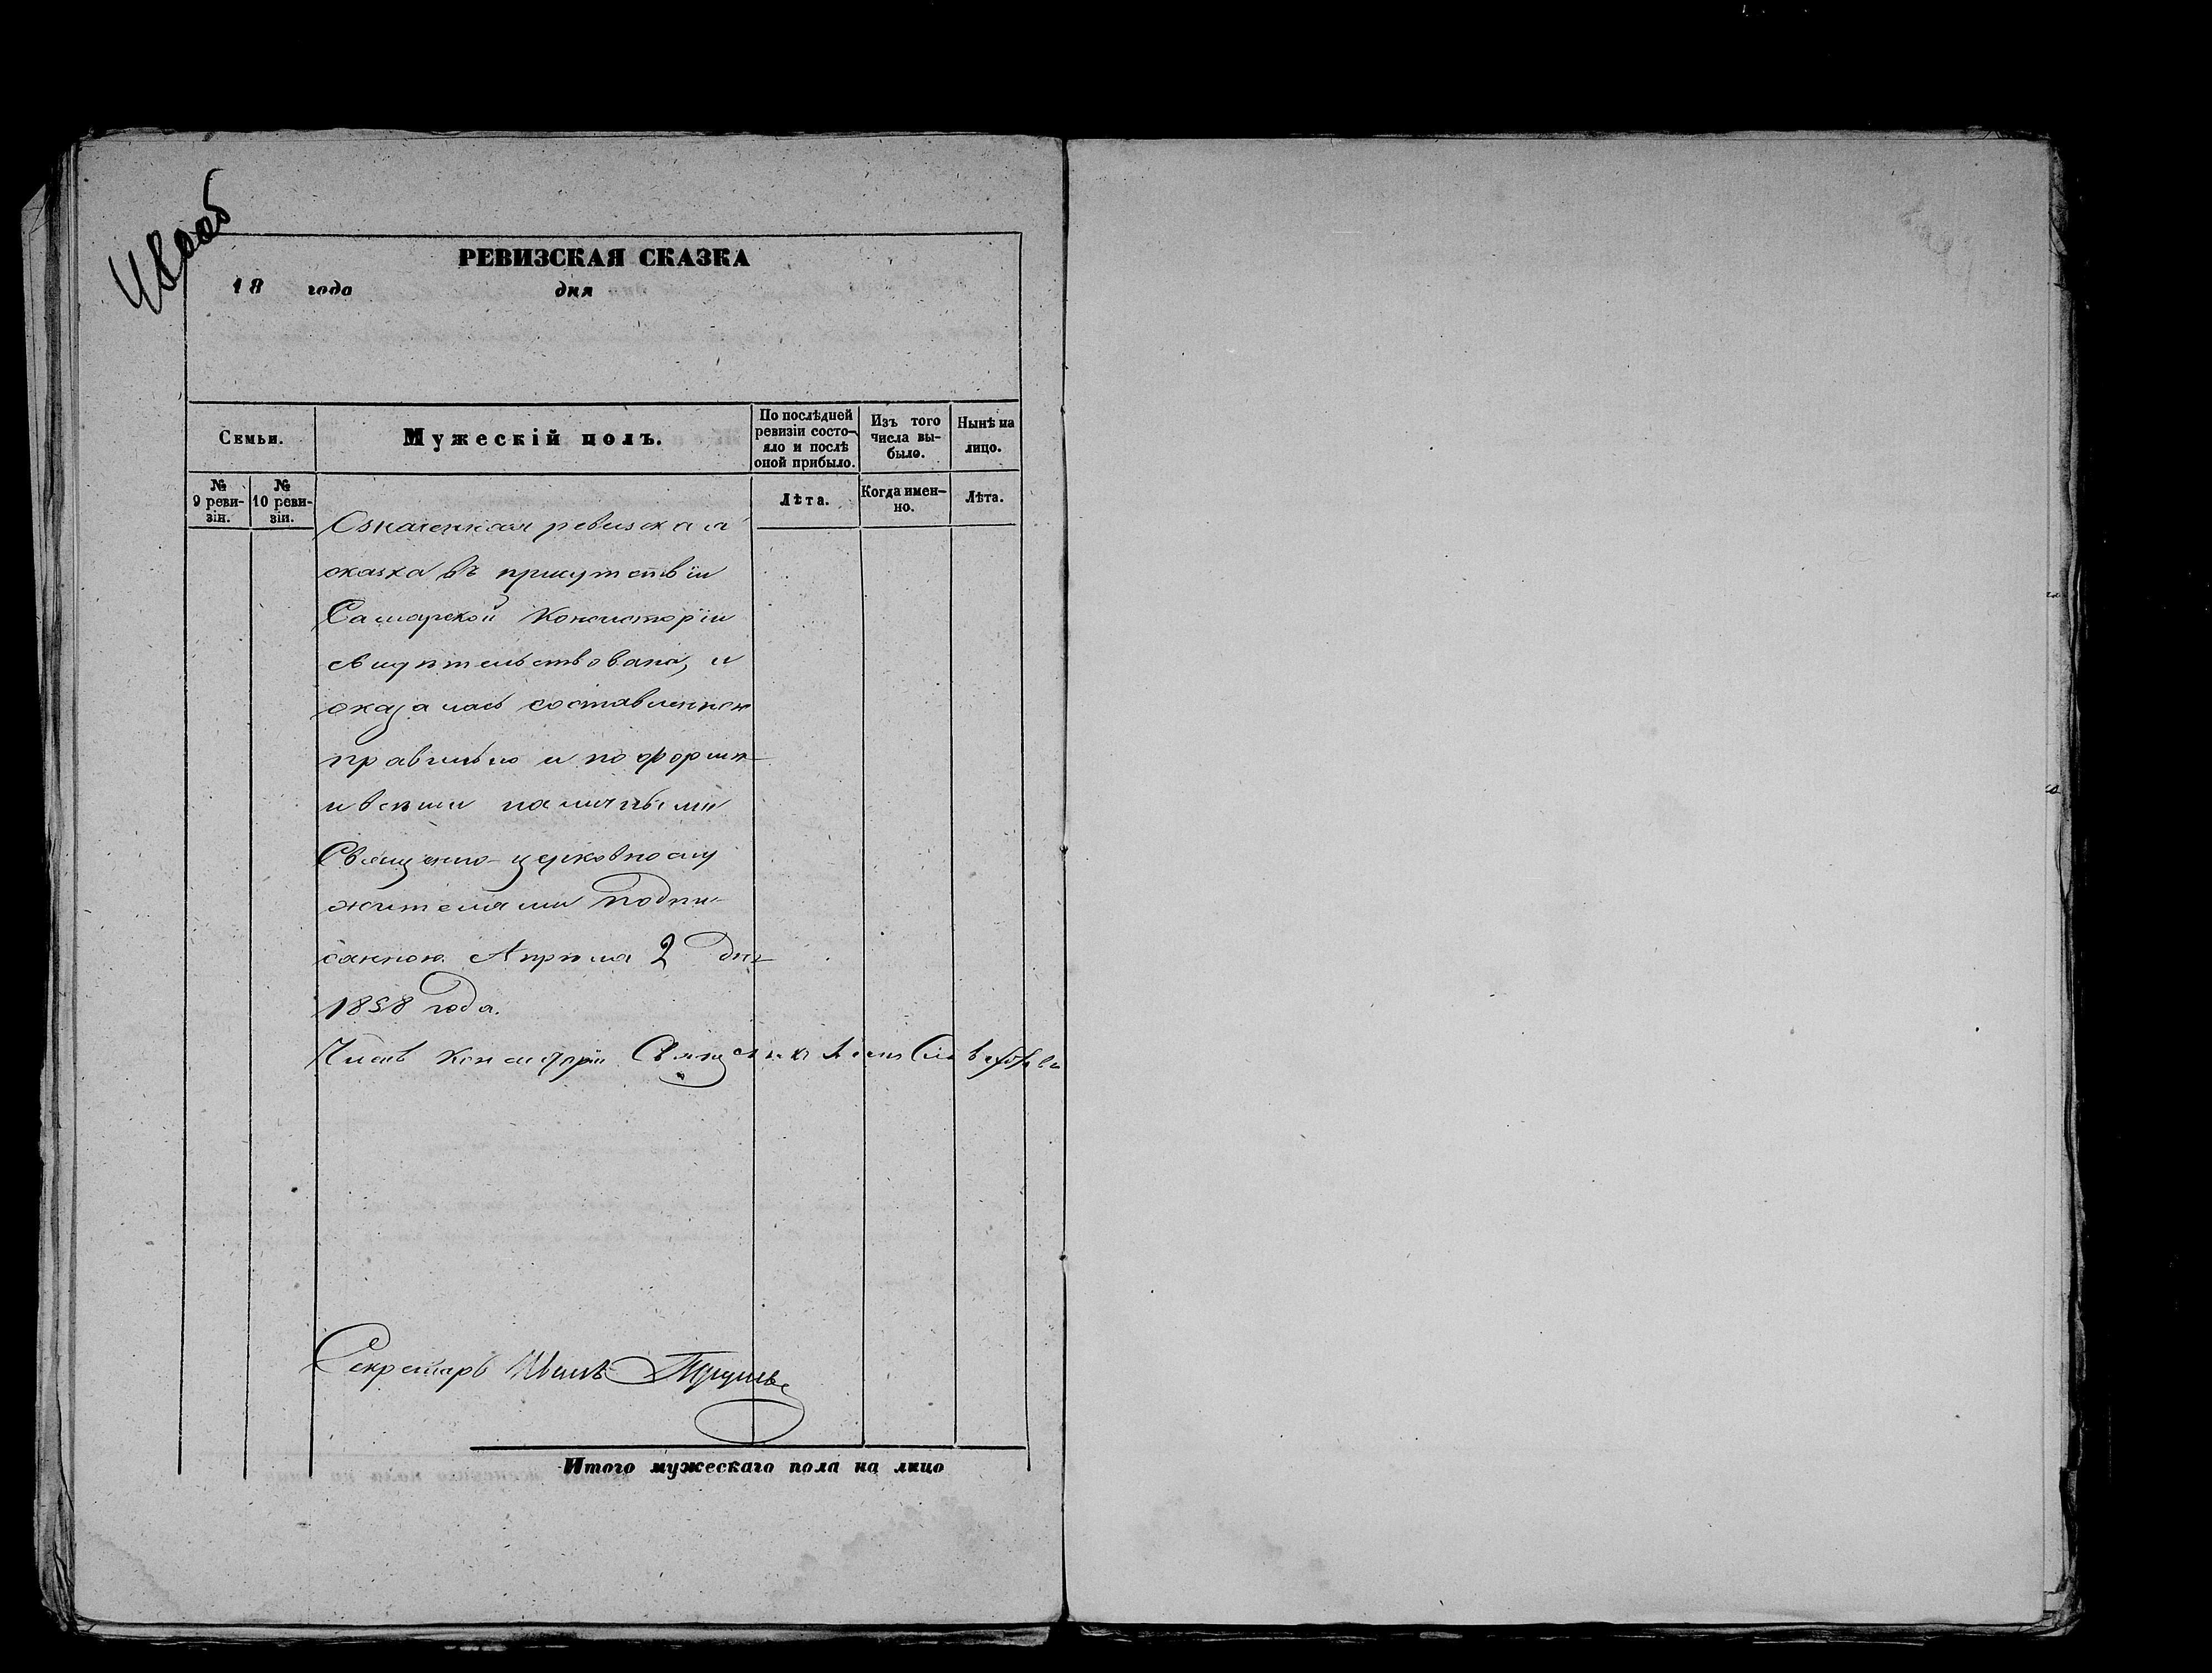 РЕВИЗСКАЯ СКАЗКА
18 года дня
Семьи.
Мужескій полъ.
По послѣдней ревизіи состояло и послѣ оной прибыло.
Изъ того числа выбыло.
Нынѣ на лицо.
№ 9 ревизіи.
№ 10 ревизіи.
Лѣта.
Когда именно.
Лѣта.
Означенная ревизская
сказка въ присутствіи
Самарской Консисторіи
свидѣтельствована, и
оказалась составленною
правильно и по формѣ
и всѣми наличными
Священно-церковнослу
жителями подпи-
санною. Апрѣля 2 дня
1858 года.
Членъ Консисторіи Священникъ
Секретарь Иванъ
Итого мужескаго пола на лицо